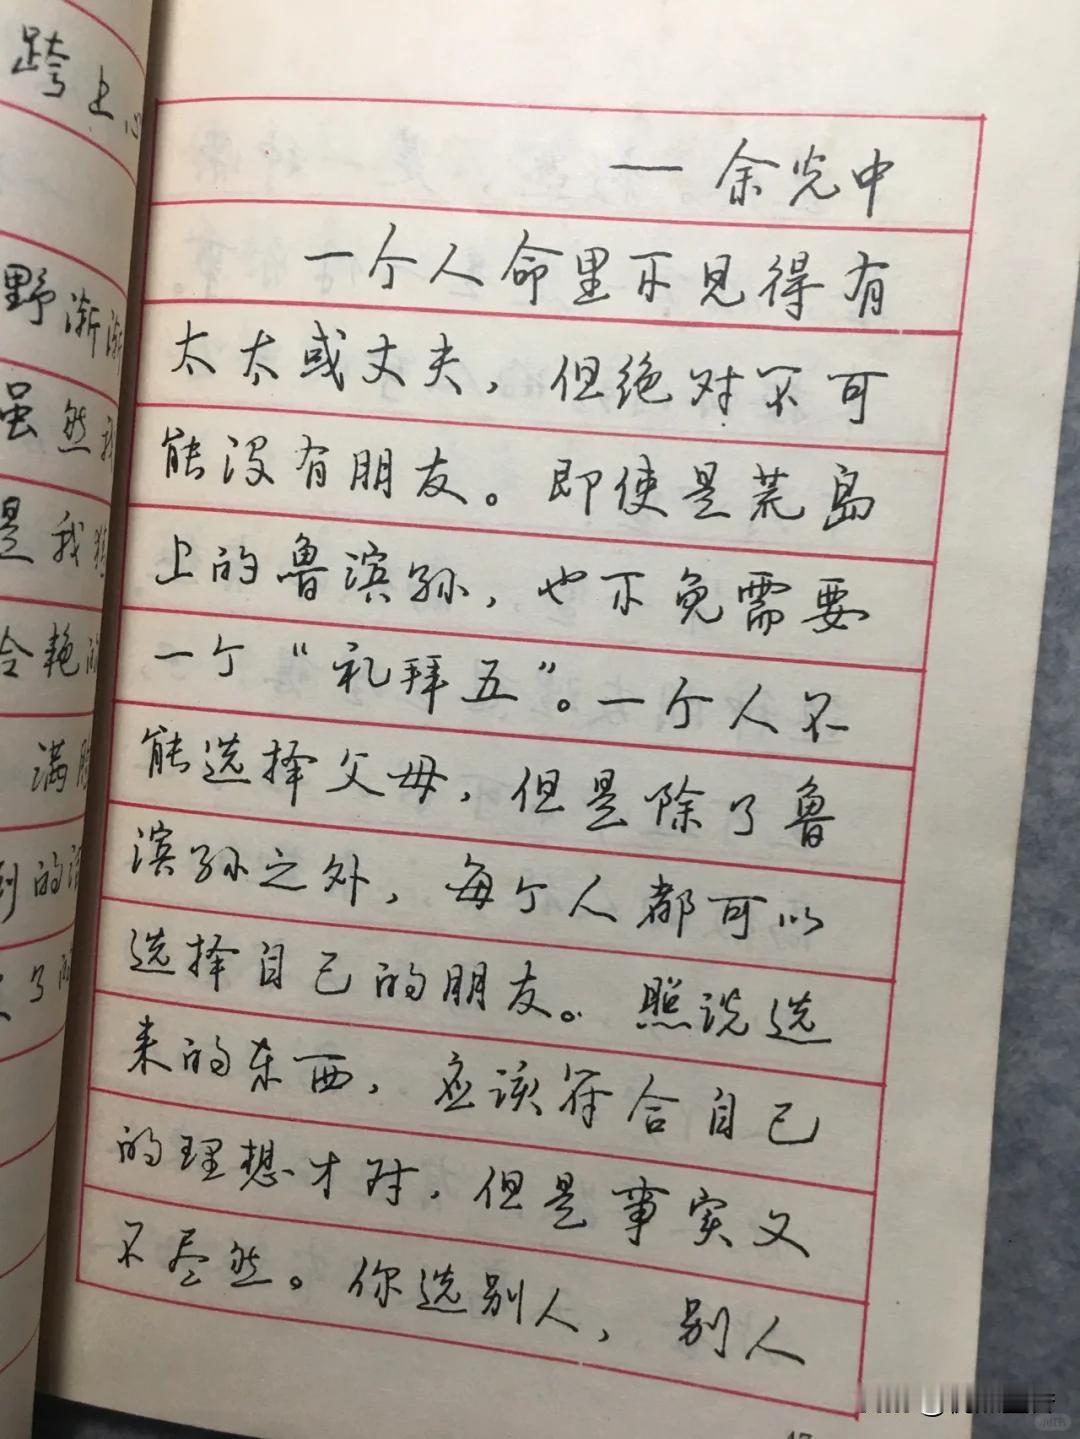 跨上心
野渐渐
虽然我
是我
合艳的
满胸
到的
了
——余光中
一个人命里不见得有
太太或丈夫，但绝对不可
能没有朋友。即使是荒岛
上的鲁滨孙，也不免需要
一个“礼拜五”。一个人不
能选择父母，但是除了鲁
滨孙之外，每个人都可以
选择自己的朋友。照说选
来的东西，应该符合自己
的理想才对，但是事实又
不尽然。你选别人，别人